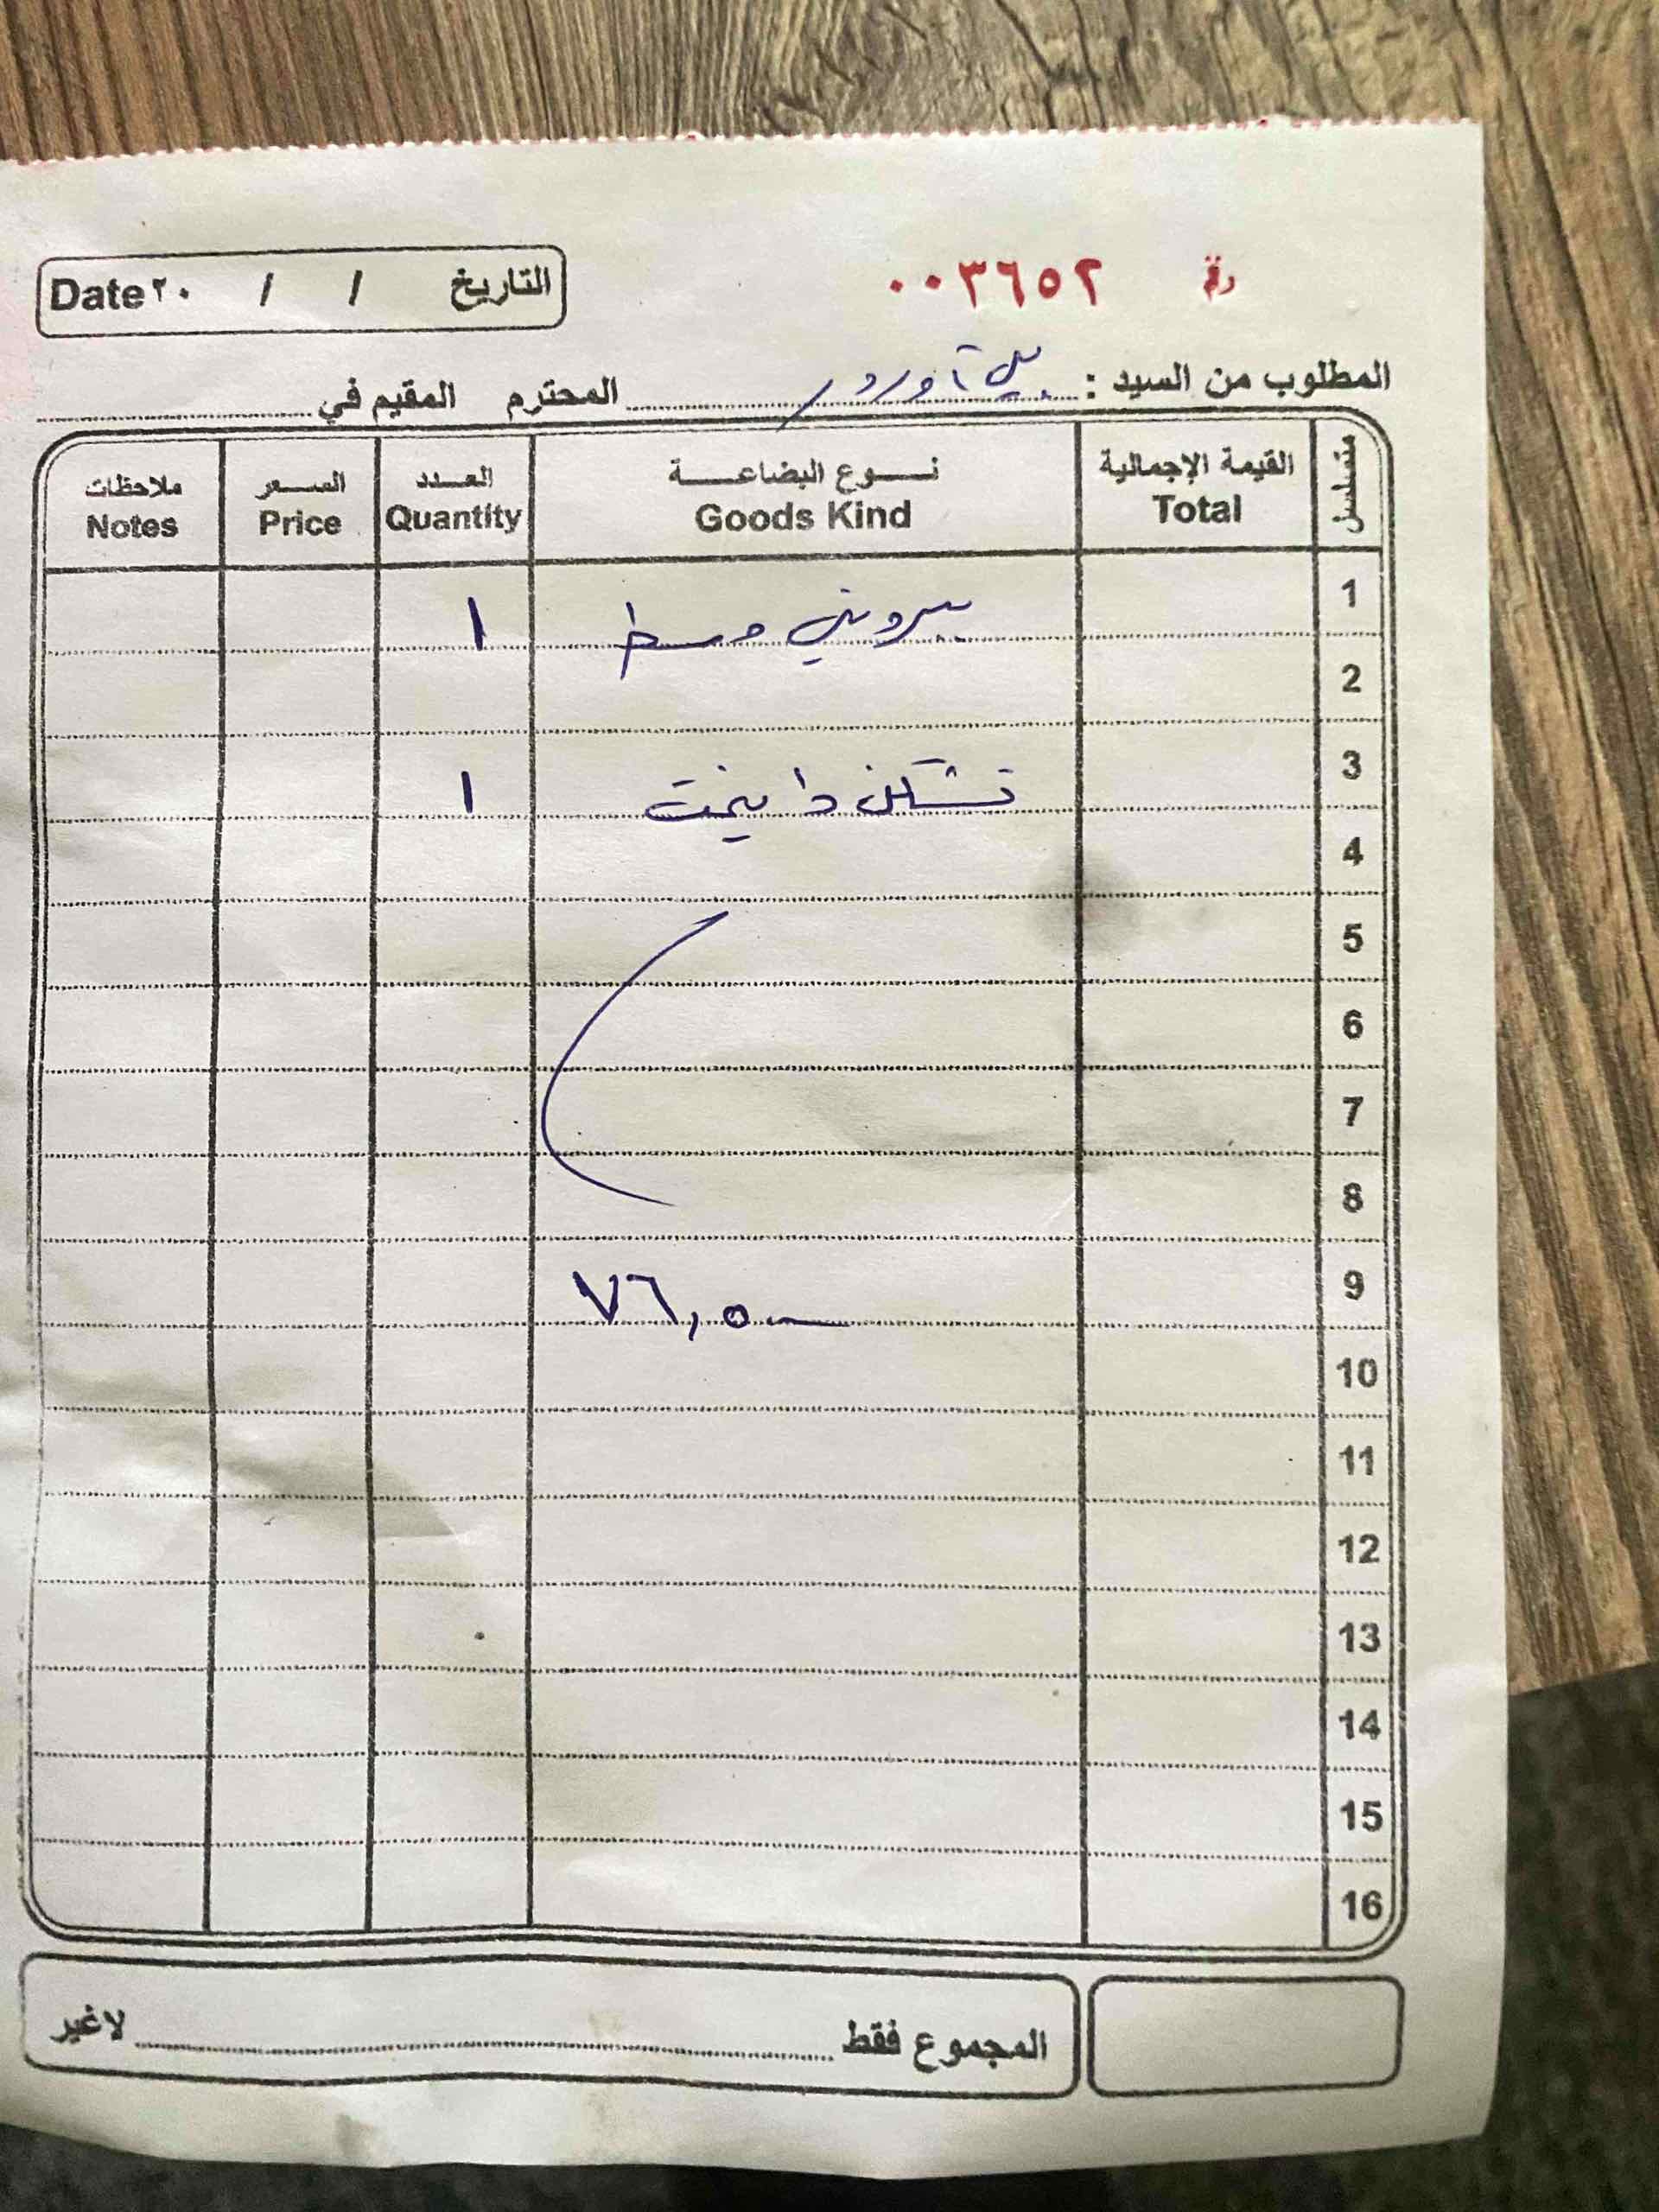 رقم ٠٠٣٦٥٢
التاريخ / / ٢٠ Date
المطلوب من السيد : بلي آوردر المحترم المقيم في
متسلسل القيمة الإجمالية نوع البضاعة العدد السعر ملاحظات
Total Goods Kind Quantity Price Notes
1 بيروني وسط ١
2
3 تشكن داينمت ١
4
5
6
7
8
9 ٧٦,٥٠
10
11
12
13
14
15
16
المجموع فقط لاغير